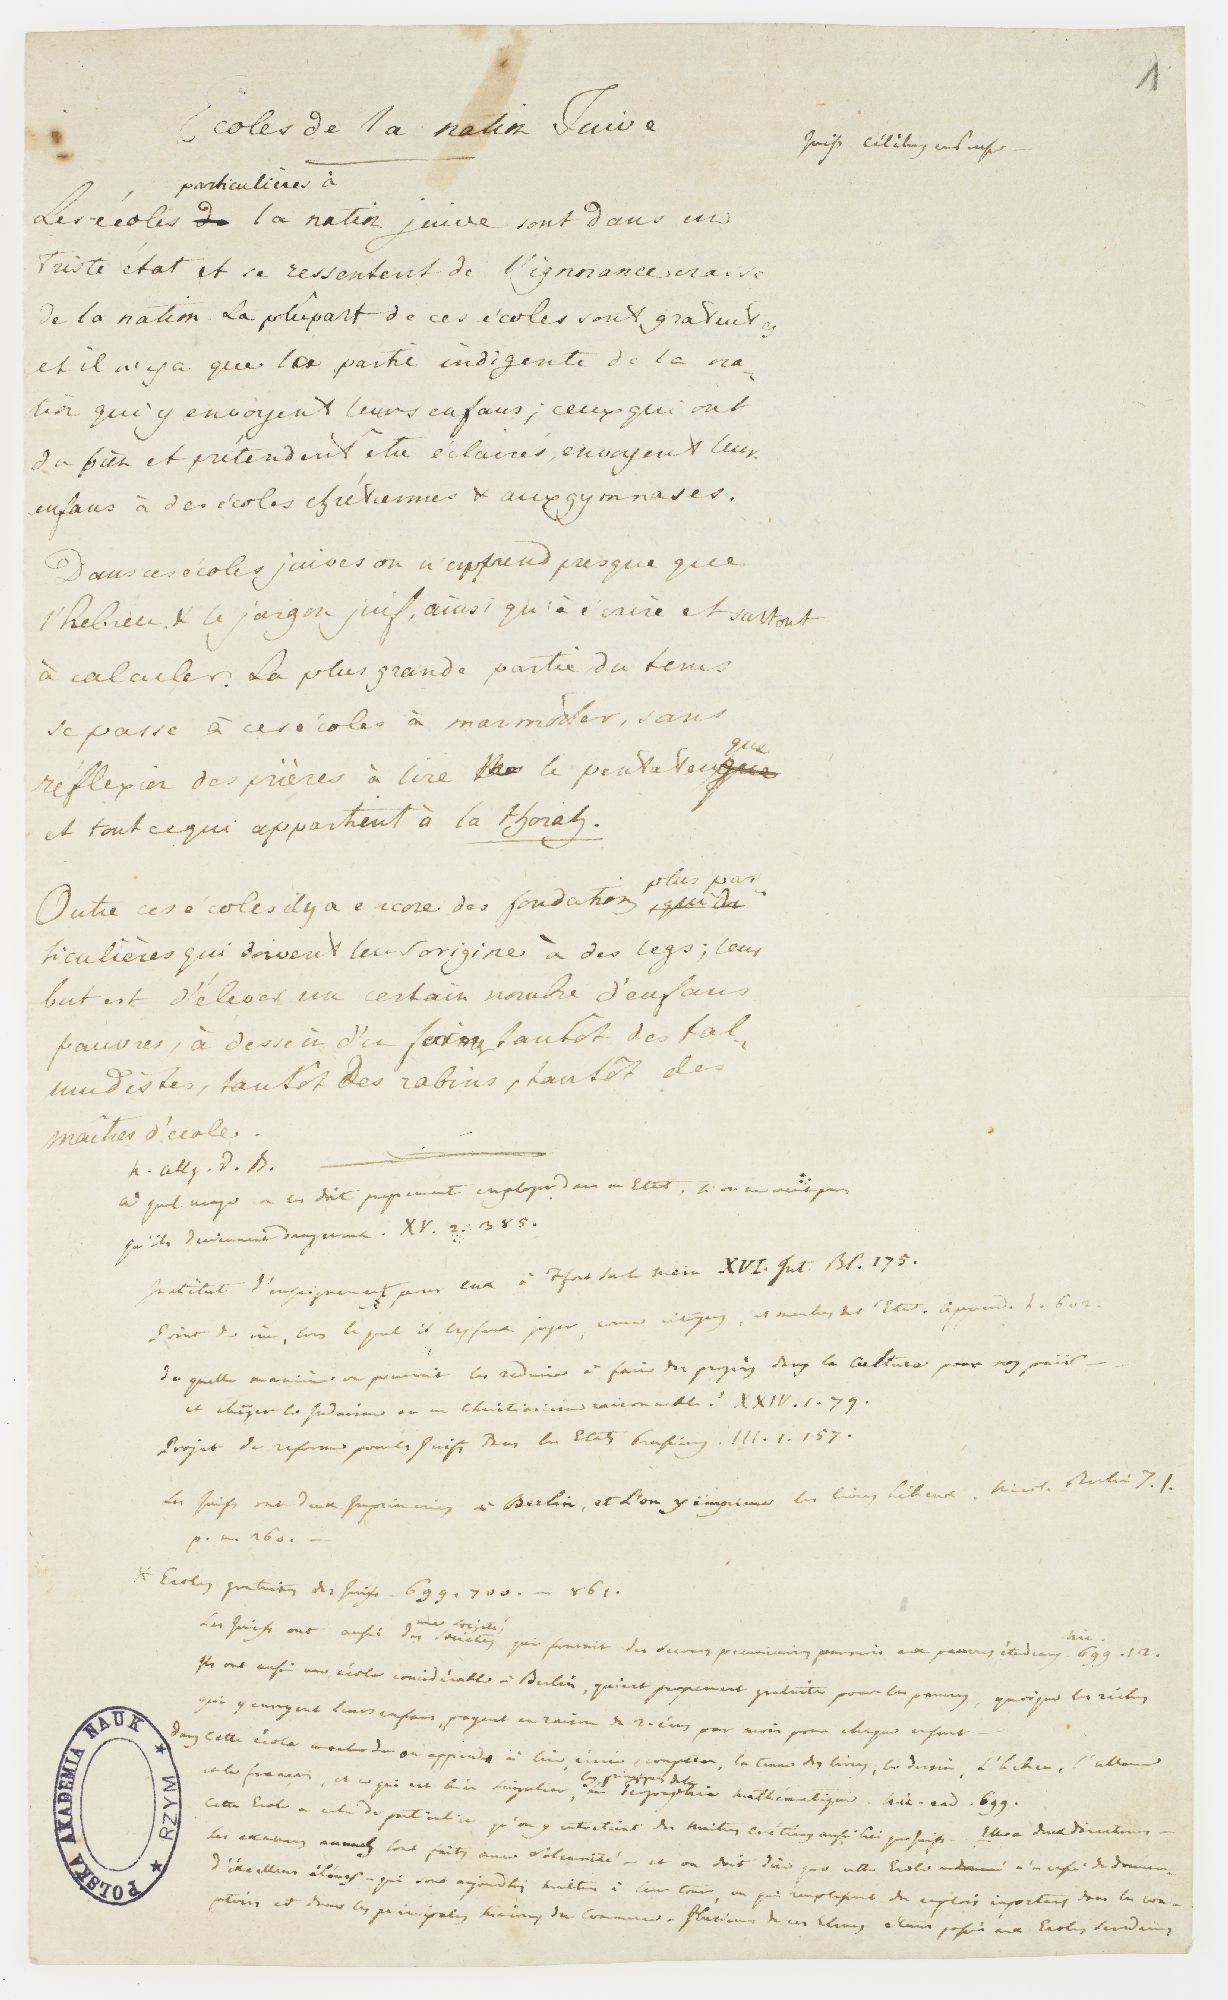 1
Écoles de la nation Juive
Juifs célèbres
particulières à
Les écoles de la nation juive sont dans un
triste état et se ressentent de l'ignorance crasse
de la nation. La plûpart de ces écoles sont gratuites
et il n'y a que la partie indigente de la na-
tion qui y envoyent leurs enfans; ceux qui ont
du bien et prétendent être éclairés, envoyent leurs
enfans à des écoles chrétiennes & aux gymnases.
Dans ces écoles juives on n'apprend presque que
l'hebreu & le jargon juif, ainsi qu'à écrire et surtout
à calculer. La plus grande partie du tems
se passe à ces écoles à marmotter, sans
réflexion des prières à lire le pentateuque
que
et tout ce qui appartient à la thorah.
plus par-
Outre ces écoles il y a encore des fondations qui du
ticulières qui doivent leurs origine à des legs; leur
but est d'élever un certain nombre d'enfans
pauvres, à dessein d'en former tantôt des tal-
mudistes, tantôt des rabins, tantôt des
maîtres d'école.
n. allg. d. B.
à quel usage on les doit proprement employer dans un Etat, si on ne veut pas
qu'ils deviennent dangereux. XV. 2. 385.
Institut d'enseignement pour eux à Ffort sur le Mein XVI. Int. Bl. 175.
Point de vue, sous lequel il les faut juger, comme citoyens, et membres de l'Etat. Append. 2. 602.
de quelle manière on pourroit les reduire à faire des progrès dans la culture pour nos païs —
et changer le Judaisme en un Christianisme raisonnable? XXIV. 1. 79.
Projet de reforme pour les Juifs dans les Etats Prussiens. III. 1. 157.
Les Juifs ont deux Imprimeries à Berlin, et l'on y imprime les livres hébreux. Nicol. Berlin T. 1.
p. m. 260. —
* Ecoles gratuites des Juifs - 699. 700. — 861.
une société
Les Juifs ont aussi des sociétés qui fournit des secours pecuniaires aux pauvres étudians. 699. 12.
Nic.
Ils ont aussi une école considérable à Berlin, qui est proprement gratuite pour les pauvres, quoique les riches
qui y envoyent leurs enfans, payent en raison de 2 écus par mois pour chaque enfant —
Dans cette école on apprend à lire, écrire, compter, la tenue des livres, le dessin, l'hebreu, l'allemand
les principes de la
et le français, et ce qui est bien singulier, Géographie mathématique. Nic. ead. 699.
Cette Ecole a cela de particulier qu'on y entretient des Maitres chrétiens aussi bien que Juifs — Elle a deux directeurs —
Les examens annuels sont faits avec solemnité — et on doit dire que cette Ecole n'a cessé de donner
d'excellens élèves — qui sont aujourdhui maîtres à leur tour, ou qui remplissent des emplois importans dans les com-
ptoirs et dans les principales Maisons de Commerce — Plusieurs de ces Eleves étant passés aux Ecoles
POLSKA AKADEMIA NAUK
RZYM